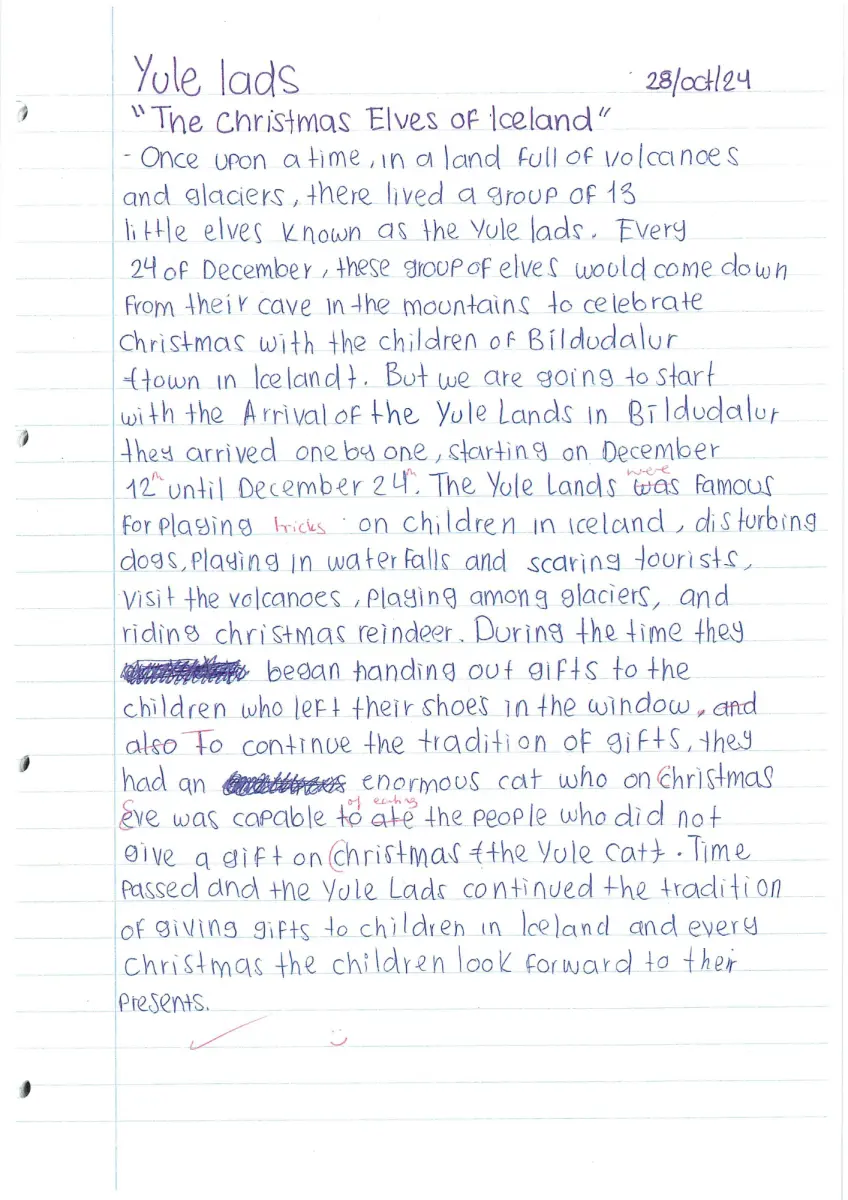 Yule lads
28/oct/24
"The Christmas Elves of Iceland"
- Once upon a time, in a land full of volcanoes
and glaciers, there lived a group of 13
little elves known as the Yule lads. Every
24 of December, these group of elves would come down
from their cave in the mountains to celebrate
Christmas with the children of Bíldudalur
(town in Iceland). But we are going to start
with the Arrival of the Yule Lands in Bíldudalur
they arrived one by one, starting on December
12th until December 24th. The Yule Lands was were famous
for playing tricks on children in iceland, disturbing
dogs, playing in waterfalls and scaring tourists,
visit the volcanoes, playing among glaciers, and
riding christmas reindeer. During the time they
began handing out gifts to the
children who left their shoes in the window, and
also To continue the tradition of gifts, they
had an enormous cat who on Christmas
Eve was capable to of ate eating the people who did not
give a gift on Christmas (the Yule cat). Time
passed and the Yule Lads continued the tradition
of giving gifts to children in Iceland and every
Christmas the children look forward to their
presents.